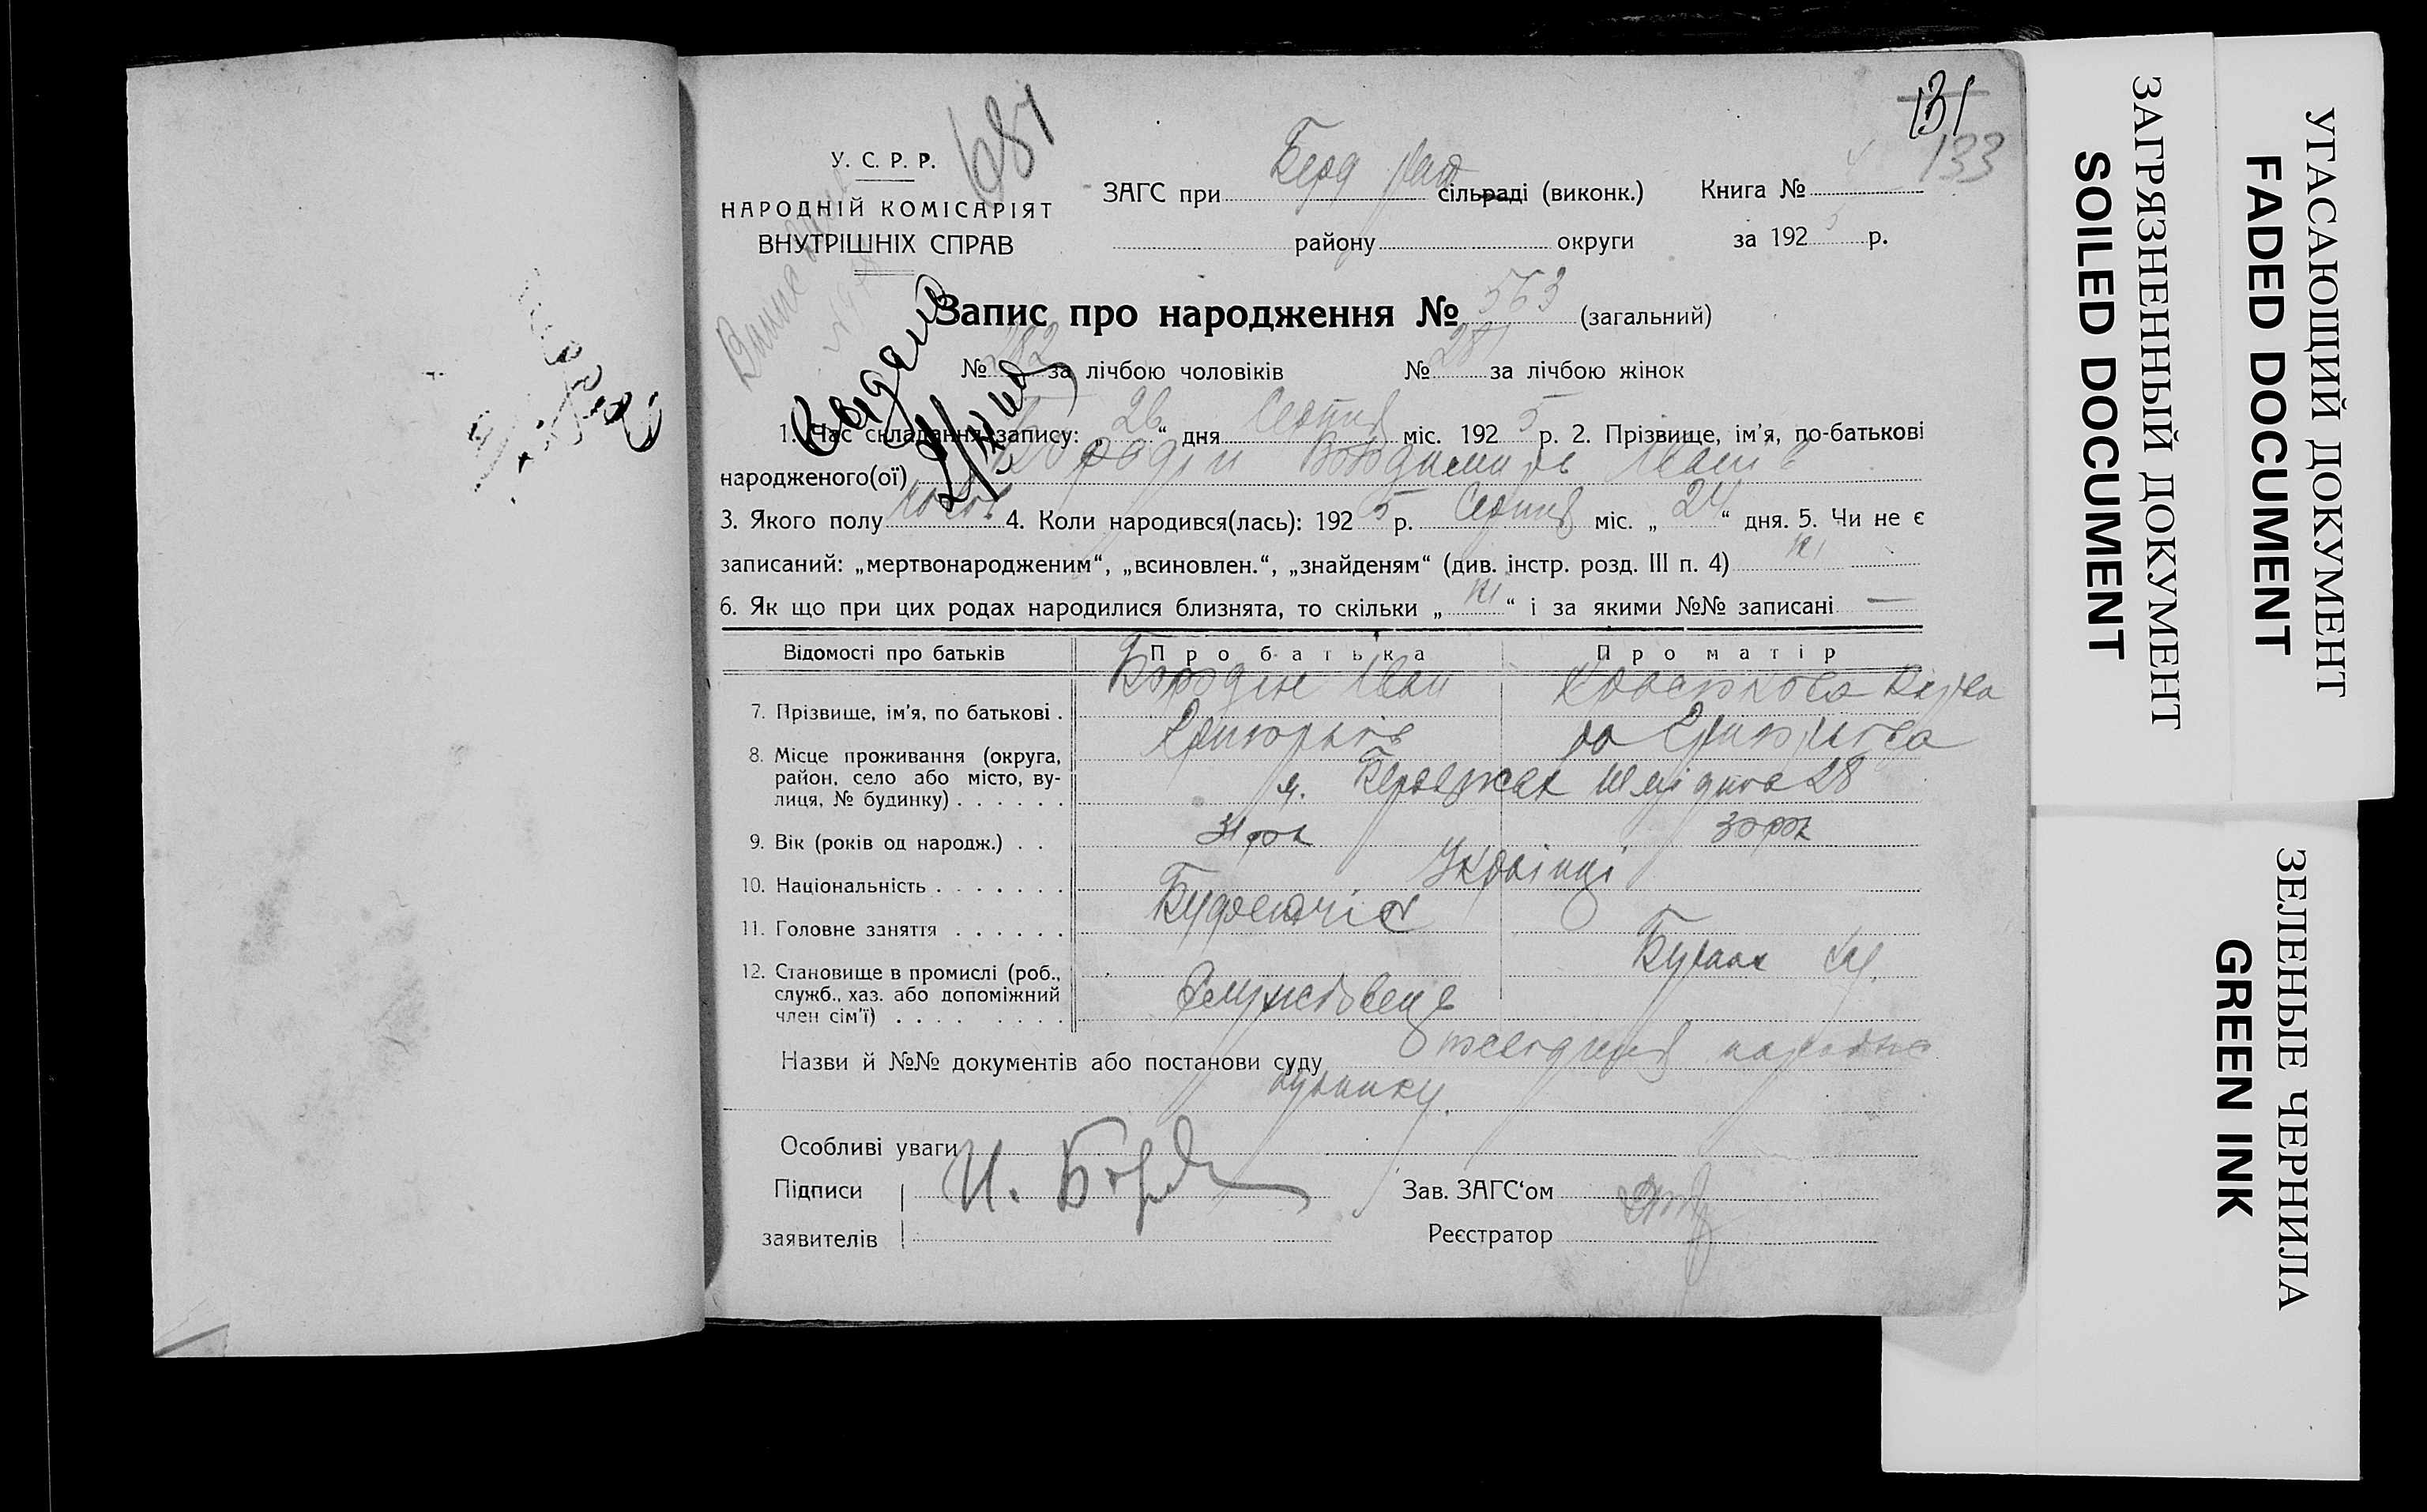 131
133
681
У. С. Р. Р.
НАРОДНІЙ КОМІСАРІЯТ
ВНУТРІШНІХ СПРАВ
ЗАГС при Берд сільраді (виконк.) Книга №
району округи за 192 5 р.
Запис про народження № 563 (загальний)
№ 282 за лічбою чоловіків № 281 за лічбою жінок
1. Час складання запису: „26“ дня Серпня міс. 192 5 р. 2. Прізвище, ім’я, по-батькові
народженого(ої) Бородін Володимир Іванів
3. Якого полу 4. Коли народився(лась): 192 5 р. Серпня міс. „ 24 “ дня. 5. Чи не є
записаний: „мертвонародженим“, „всиновлен.“, „знайденям“ (див. інстр. розд. III п. 4) ні
6. Як що при цих родах народилися близнята, то скільки „ ні “ і за якими №№ записані —
Відомості про батьків Про батька Про матір
7. Прізвище, ім’я, по батькові . Бородін Іван
Григорьів Григорьєва
8. Місце проживання (округа,
район, село або місто, ву-
лиця, № будинку) . . . . . . м. Бердянськ Шмідта 28
9. Вік (років од народж.) . . 31 рок 30 рок
10. Національність . . . . . . . Українці
11. Головне заняття . . . . . .
12. Становище в промислі (роб.,
служб., хаз. або допоміжний
член сім’ї) . . . . . . . . Службовець
Назви й №№ документів або постанови суду посвідчення
Особливі уваги
Підписи И. Бород Зав. ЗАГС‘ом
заявителів Реєстратор
УГАСАЮЩИЙ ДОКУМЕНТ
FADED DOCUMENT
ЗАГРЯЗНЕННЫЙ ДОКУМЕНТ
SOILED DOCUMENT
ЗЕЛЕНЫЕ ЧЕРНИЛА
GREEN INK